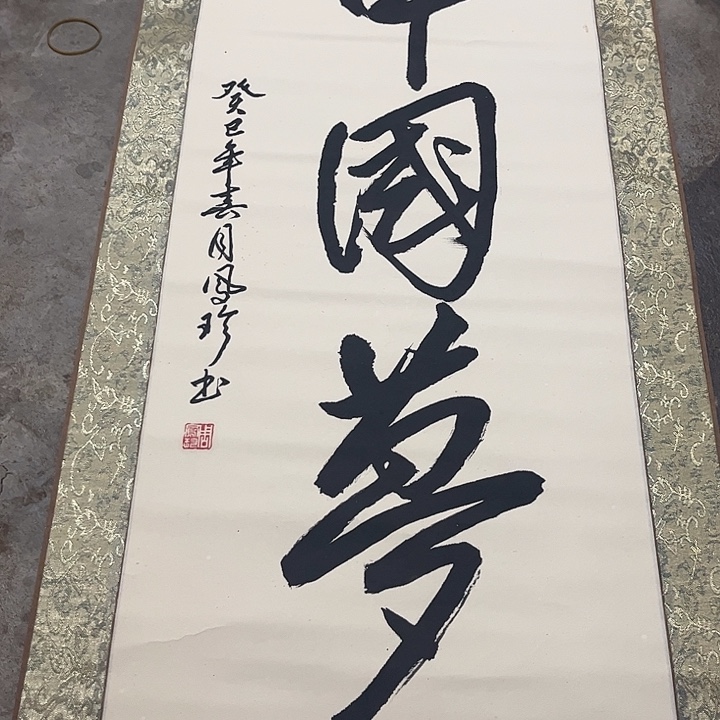 中國夢
癸巳年春月鳳珍书